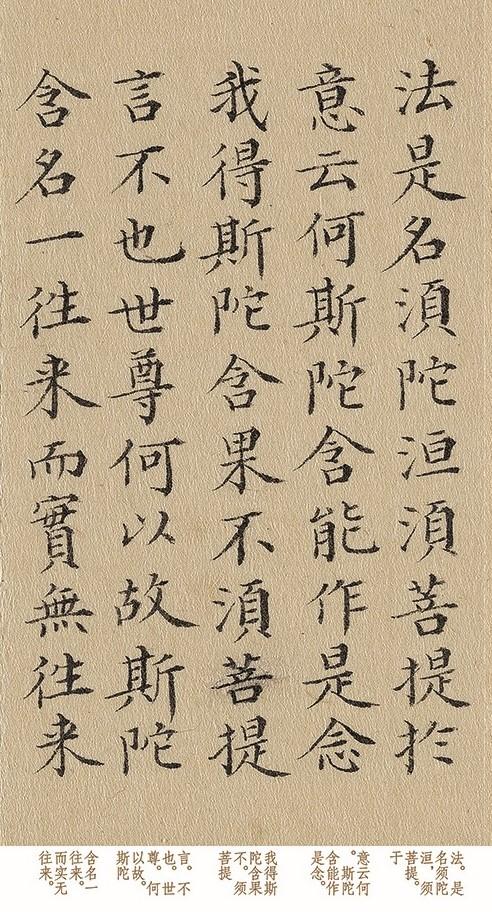 法是名須陀洹須菩提扵
意云何斯陀含能作是念
我得斯陀含果不須菩提
言不也世尊何以故斯陀
含名一徃来而實無徃来
法。是
名须陀
洹，须
菩提。
于
意云何
。斯陀
含能作
是念。
我得斯
陀含果
不。须
菩提
言。不
也。世
尊。何
以故。
斯陀
含名一
往来。
而实无
往来。